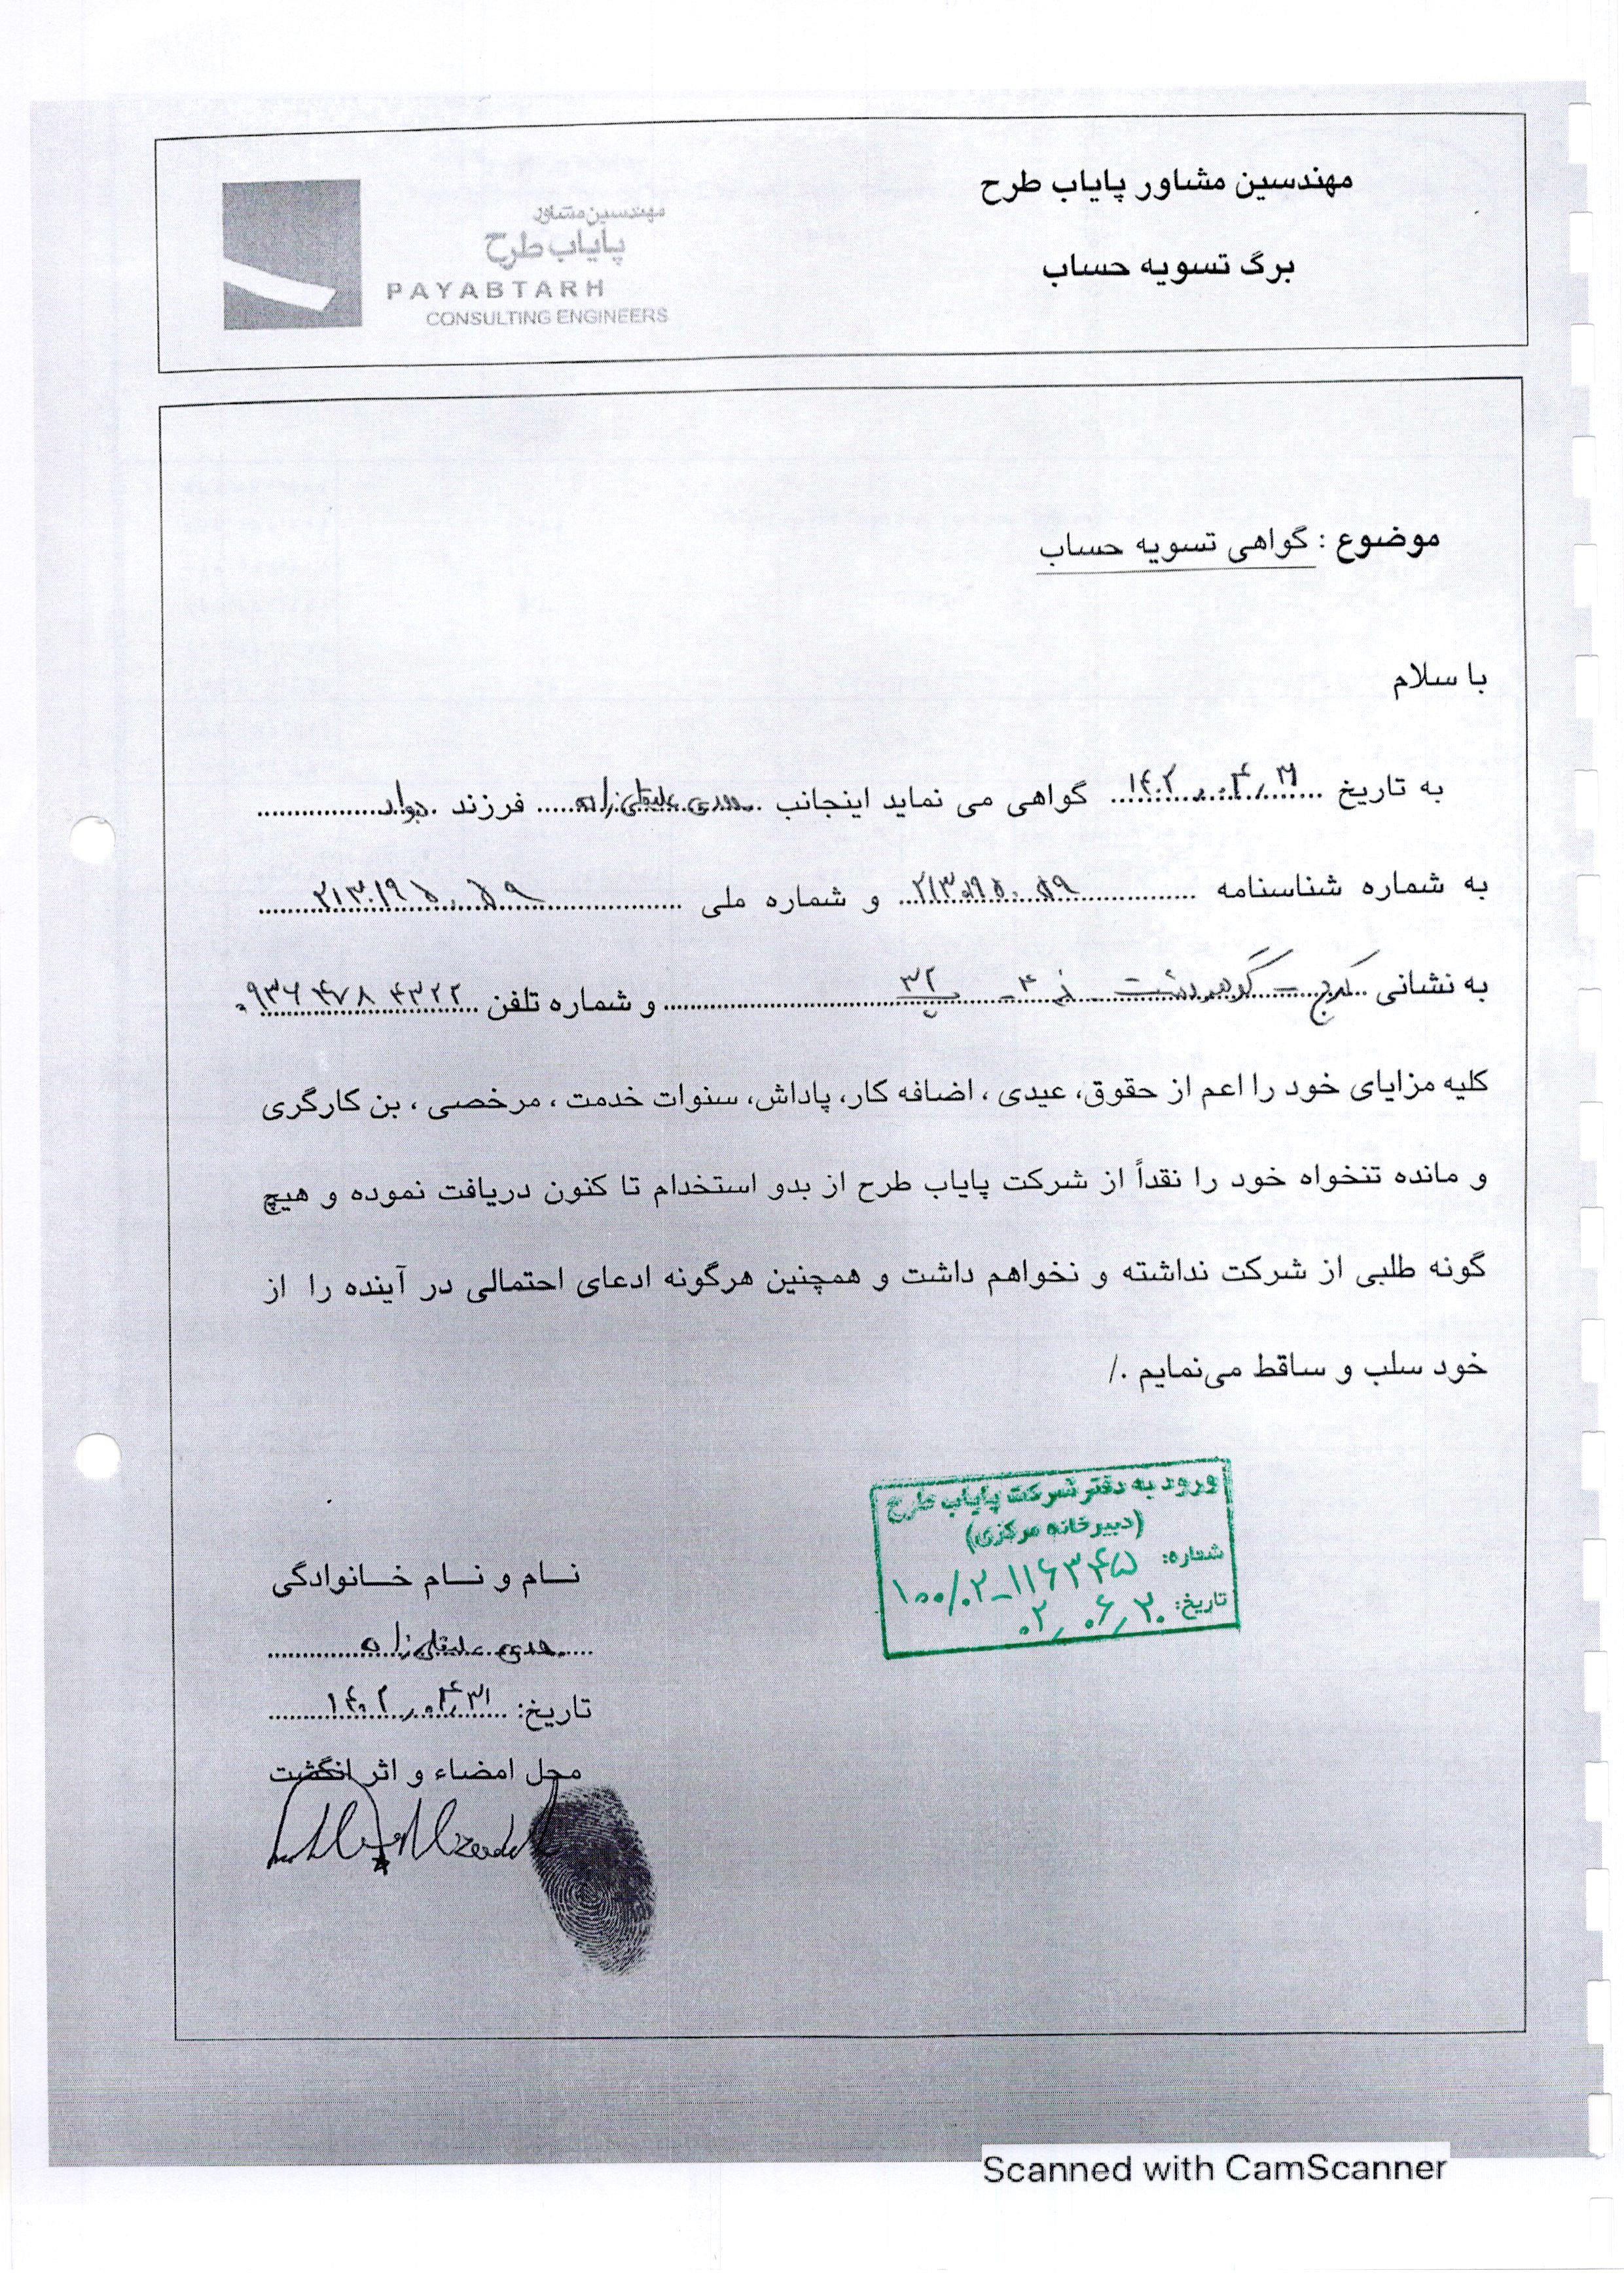 مهندسین مشاور پایاب طرح
برگ تسویه حساب
مهندسین مشاور
پایاب طرح
PAYABTARH
CONSULTING ENGINEERS
موضوع : گواهی تسویه حساب
با سلام
به تاریخ ۱۴۰۲/۰۴/۳۱ گواهی می نماید اینجانب فرزند جواد
به شماره شناسنامه و شماره ملی
به نشانی کرج - گوهردشت - ف ۴ - پ ۳۲ و شماره تلفن ۰۹۳۶ ۴۷۸ ۴۳۲۲
کلیه مزایای خود را اعم از حقوق، عیدی ، اضافه کار، پاداش، سنوات خدمت ، مرخصی ، بن کارگری
و مانده تنخواه خود را نقداً از شرکت پایاب طرح از بدو استخدام تا کنون دریافت نموده و هیچ
گونه طلبی از شرکت نداشته و نخواهم داشت و همچنین هرگونه ادعای احتمالی در آینده را از
خود سلب و ساقط می‌نمایم ./
ورود به دفتر شرکت پایاب طرح
(دبیرخانه مرکزی)
شماره: ۱۰۰/۰۲-۱۱۶۳۴۵
تاریخ: ۰۲/۰۶/۲۰
نـام و نـام خـانوادگی
علیقلی‌زاده
تاریخ: ۱۴۰۲/۰۴/۳۱
محل امضاء و اثر انگشت
Scanned with CamScanner